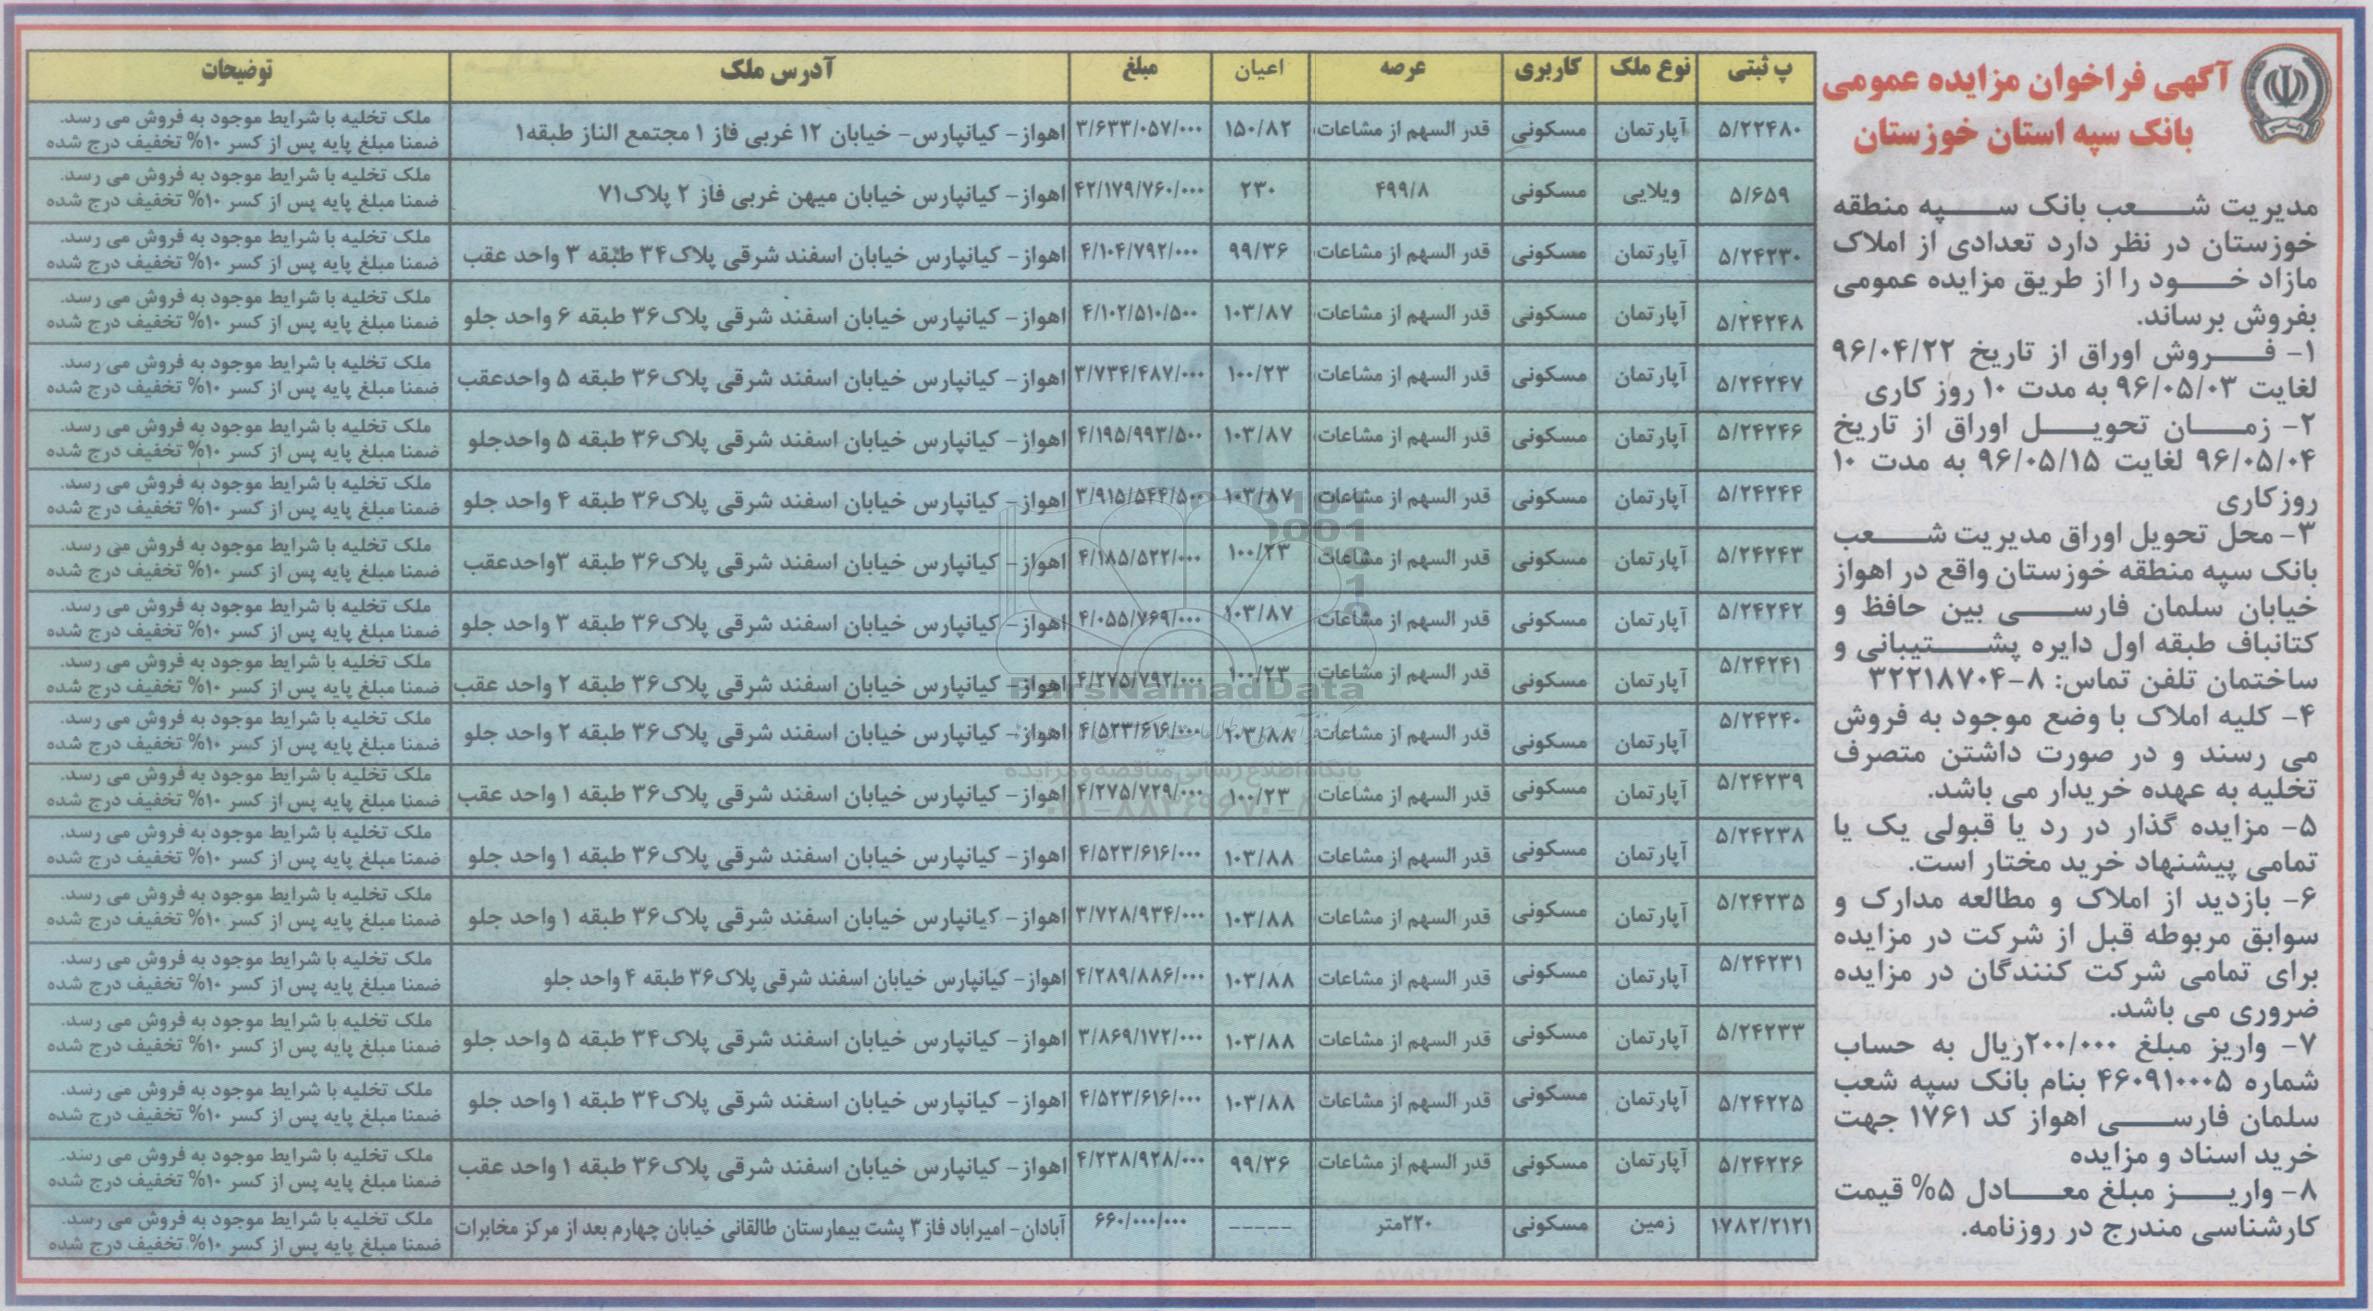 آگهی فراخوان مزایده عمومی
بانک سپه استان خوزستان
مدیریت شعب بانک سپه منطقه
خوزستان در نظر دارد تعدادی از املاک
مازاد خود را از طریق مزایده عمومی
بفروش برساند.
۱- فروش اوراق از تاریخ ۹۶/۰۴/۲۲
لغایت ۹۶/۰۵/۰۳ به مدت ۱۰ روز کاری
۲- زمان تحویل اوراق از تاریخ
۹۶/۰۵/۰۴ لغایت ۹۶/۰۵/۱۵ به مدت ۱۰
روزکاری
۳- محل تحویل اوراق مدیریت شعب
بانک سپه منطقه خوزستان واقع در اهواز
خیابان سلمان فارسی بین حافظ و
کتانباف طبقه اول دایره پشتیبانی و
ساختمان تلفن تماس: ۸-۳۲۲۱۸۷۰۴
۴- کلیه املاک با وضع موجود به فروش
می رسند و در صورت داشتن متصرف
تخلیه به عهده خریدار می باشد.
۵- مزایده گذار در رد یا قبولی یک یا
تمامی پیشنهاد خرید مختار است.
۶- بازدید از املاک و مطالعه مدارک و
سوابق مربوطه قبل از شرکت در مزایده
برای تمامی شرکت کنندگان در مزایده
ضروری می باشد.
۷- واریز مبلغ ۲۰۰/۰۰۰ریال به حساب
شماره ۴۶۰۹۱۰۰۰۵ بنام بانک سپه شعب
سلمان فارسی اهواز کد ۱۷۶۱ جهت
خرید اسناد و مزایده
۸- واریز مبلغ معادل ۵% قیمت
کارشناسی مندرج در روزنامه.
پ ثبتی نوع ملک کاربری عرصه اعیان مبلغ آدرس ملک توضیحات
۵/۲۲۴۸۰ آپارتمان مسکونی قدر السهم از مشاعات ۱۵۰/۸۲ ۳/۶۳۳/۰۵۷/۰۰۰ اهواز- کیانپارس- خیابان ۱۲ غربی فاز ۱ مجتمع الناز طبقه۱ ملک تخلیه با شرایط موجود به فروش می رسد.
ضمنا مبلغ پایه پس از کسر ۱۰% تخفیف درج شده
۵/۶۵۹ ویلایی مسکونی ۴۹۹/۸ ۲۳۰ ۴۲/۱۷۹/۷۶۰/۰۰۰ اهواز- کیانپارس خیابان میهن غربی فاز ۲ پلاک۷۱ ملک تخلیه با شرایط موجود به فروش می رسد.
ضمنا مبلغ پایه پس از کسر ۱۰% تخفیف درج شده
۵/۲۴۲۳۰ آپارتمان مسکونی قدر السهم از مشاعات ۹۹/۳۶ ۴/۱۰۴/۷۹۲/۰۰۰ اهواز- کیانپارس خیابان اسفند شرقی پلاک۳۴ طبقه ۳ واحد عقب ملک تخلیه با شرایط موجود به فروش می رسد.
ضمنا مبلغ پایه پس از کسر ۱۰% تخفیف درج شده
۵/۲۴۲۴۸ آپارتمان مسکونی قدر السهم از مشاعات ۱۰۳/۸۷ ۴/۱۰۲/۵۱۰/۵۰۰ اهواز- کیانپارس خیابان اسفند شرقی پلاک۳۶ طبقه ۶ واحد جلو ملک تخلیه با شرایط موجود به فروش می رسد.
ضمنا مبلغ پایه پس از کسر ۱۰% تخفیف درج شده
۵/۲۴۲۴۷ آپارتمان مسکونی قدر السهم از مشاعات ۱۰۰/۲۳ ۳/۷۳۴/۴۸۷/۰۰۰ اهواز- کیانپارس خیابان اسفند شرقی پلاک۳۶ طبقه ۵ واحدعقب ملک تخلیه با شرایط موجود به فروش می رسد.
ضمنا مبلغ پایه پس از کسر ۱۰% تخفیف درج شده
۵/۲۴۲۴۶ آپارتمان مسکونی قدر السهم از مشاعات ۱۰۳/۸۷ ۴/۱۹۵/۹۹۳/۵۰۰ اهواز- کیانپارس خیابان اسفند شرقی پلاک۳۶ طبقه ۵ واحدجلو ملک تخلیه با شرایط موجود به فروش می رسد.
ضمنا مبلغ پایه پس از کسر ۱۰% تخفیف درج شده
۵/۲۴۲۴۴ آپارتمان مسکونی قدر السهم از مشاعات ۱۰۳/۸۷ ۳/۹۱۵/۵۴۴/۵۰۰ اهواز- کیانپارس خیابان اسفند شرقی پلاک۳۶ طبقه ۴ واحد جلو ملک تخلیه با شرایط موجود به فروش می رسد.
ضمنا مبلغ پایه پس از کسر ۱۰% تخفیف درج شده
۵/۲۴۲۴۳ آپارتمان مسکونی قدر السهم از مشاعات ۱۰۰/۲۳ ۴/۱۸۵/۵۲۲/۰۰۰ اهواز- کیانپارس خیابان اسفند شرقی پلاک۳۶ طبقه ۳واحدعقب ملک تخلیه با شرایط موجود به فروش می رسد.
ضمنا مبلغ پایه پس از کسر ۱۰% تخفیف درج شده
۵/۲۴۲۴۲ آپارتمان مسکونی قدر السهم از مشاعات ۱۰۳/۸۷ ۴/۰۵۵/۷۶۹/۰۰۰ اهواز- کیانپارس خیابان اسفند شرقی پلاک۳۶ طبقه ۳ واحد جلو ملک تخلیه با شرایط موجود به فروش می رسد.
ضمنا مبلغ پایه پس از کسر ۱۰% تخفیف درج شده
۵/۲۴۲۴۱ آپارتمان مسکونی قدر السهم از مشاعات ۱۰۰/۲۳ ۴/۲۷۵/۷۹۲/۰۰۰ اهواز- کیانپارس خیابان اسفند شرقی پلاک۳۶ طبقه ۲ واحد عقب ملک تخلیه با شرایط موجود به فروش می رسد.
ضمنا مبلغ پایه پس از کسر ۱۰% تخفیف درج شده
۵/۲۴۲۴۰ آپارتمان مسکونی قدر السهم از مشاعات ۱۰۳/۸۸ ۴/۵۲۳/۶۱۶/۰۰۰ اهواز- کیانپارس خیابان اسفند شرقی پلاک۳۶ طبقه ۲ واحد جلو ملک تخلیه با شرایط موجود به فروش می رسد.
ضمنا مبلغ پایه پس از کسر ۱۰% تخفیف درج شده
۵/۲۴۲۳۹ آپارتمان مسکونی قدر السهم از مشاعات ۱۰۰/۲۳ ۴/۲۷۵/۷۲۹/۰۰۰ اهواز- کیانپارس خیابان اسفند شرقی پلاک۳۶ طبقه ۱ واحد عقب ملک تخلیه با شرایط موجود به فروش می رسد.
ضمنا مبلغ پایه پس از کسر ۱۰% تخفیف درج شده
۵/۲۴۲۳۸ آپارتمان مسکونی قدر السهم از مشاعات ۱۰۳/۸۸ ۴/۵۲۳/۶۱۶/۰۰۰ اهواز- کیانپارس خیابان اسفند شرقی پلاک۳۶ طبقه ۱ واحد جلو ملک تخلیه با شرایط موجود به فروش می رسد.
ضمنا مبلغ پایه پس از کسر ۱۰% تخفیف درج شده
۵/۲۴۲۳۵ آپارتمان مسکونی قدر السهم از مشاعات ۱۰۳/۸۸ ۳/۷۲۸/۹۳۴/۰۰۰ اهواز- کیانپارس خیابان اسفند شرقی پلاک۳۶ طبقه ۱ واحد جلو ملک تخلیه با شرایط موجود به فروش می رسد.
ضمنا مبلغ پایه پس از کسر ۱۰% تخفیف درج شده
۵/۲۴۲۳۱ آپارتمان مسکونی قدر السهم از مشاعات ۱۰۳/۸۸ ۴/۲۸۹/۸۸۶/۰۰۰ اهواز- کیانپارس خیابان اسفند شرقی پلاک۳۶ طبقه ۴ واحد جلو ملک تخلیه با شرایط موجود به فروش می رسد.
ضمنا مبلغ پایه پس از کسر ۱۰% تخفیف درج شده
۵/۲۴۲۳۳ آپارتمان مسکونی قدر السهم از مشاعات ۱۰۳/۸۸ ۳/۸۶۹/۱۷۲/۰۰۰ اهواز- کیانپارس خیابان اسفند شرقی پلاک۳۴ طبقه ۵ واحد جلو ملک تخلیه با شرایط موجود به فروش می رسد.
ضمنا مبلغ پایه پس از کسر ۱۰% تخفیف درج شده
۵/۲۴۲۲۵ آپارتمان مسکونی قدر السهم از مشاعات ۱۰۳/۸۸ ۴/۵۲۳/۶۱۶/۰۰۰ اهواز- کیانپارس خیابان اسفند شرقی پلاک۳۴ طبقه ۱ واحد جلو ملک تخلیه با شرایط موجود به فروش می رسد.
ضمنا مبلغ پایه پس از کسر ۱۰% تخفیف درج شده
۵/۲۴۲۲۶ آپارتمان مسکونی قدر السهم از مشاعات ۹۹/۳۶ ۴/۲۳۸/۹۲۸/۰۰۰ اهواز- کیانپارس خیابان اسفند شرقی پلاک۳۶ طبقه ۱ واحد عقب ملک تخلیه با شرایط موجود به فروش می رسد.
ضمنا مبلغ پایه پس از کسر ۱۰% تخفیف درج شده
۱۷۸۲/۲۱۲۱ زمین مسکونی ۲۲۰متر ----- ۶۶۰/۰۰۰/۰۰۰ آبادان- امیراباد فاز ۳ پشت بیمارستان طالقانی خیابان چهارم بعد از مرکز مخابرات ملک تخلیه با شرایط موجود به فروش می رسد.
ضمنا مبلغ پایه پس از کسر ۱۰% تخفیف درج شده
ParsNamadData
پایگاه اطلاع رسانی مناقصه و مزایده
۰۲۱-۸۸۳۴۹۶۷۰-۵